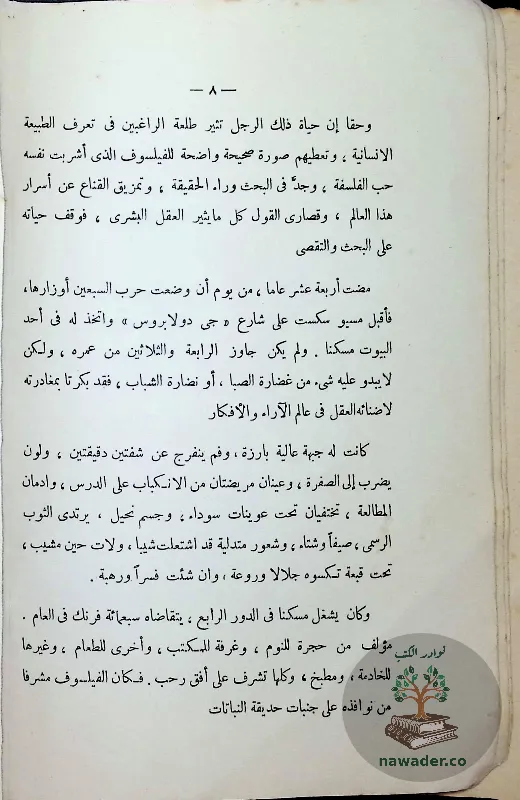 — ٨ —
وحقا إن حياة ذلك الرجل تثير طلعة الراغبين فى تعرف الطبيعة
الانسانية ، وتعطيهم صورة صحيحة واضحة للفيلسوف الذى أشربت نفسه
حب الفلسفة ، وجدَّ فى البحث وراء الحقيقة ، وتمزيق القناع عن أسرار
هذا العالم ، وقصارى القول كل مايثير العقل البشرى ، فوقف حياته
على البحث والتقصى
مضت أربعة عشر عاما ، من يوم أن وضعت حرب السبعين أوزارها،
فأقبل مسيو سكست على شارع « جى دولابروس » واتخذ له فى أحد
البيوت مسكنا . ولم يكن جاوز الرابعة والثلاثين من عمره ، ولكن
لايبدو عليه شىء من غضارة الصبا ، أو نضارة الشباب ، فقد بكرتا بمغادرته
لاضنائه العقل فى عالم الآراء والأفكار
كانت له جبهة عالية بارزة ، وفم ينفرج عن شفتين دقيقتين ، ولون
يضرب إلى الصفرة ، وعينان مريضتان من الانكباب على الدرس ، وادمان
المطالعة ، تختفيان تحت عوينات سوداء ، وجسم نحيل ، يرتدى الثوب
الرسمى ، صيفاً وشتاء ، وشعور متدلية قد اشتعلت شيبا ، ولات حين مشيب ،
تحت قبعة تكسوه جلالا وروعة ، وان شئت فسراً ورهبة .
وكان يشغل مسكنا فى الدور الرابع ، يتقاضاه سبعمائة فرنك فى العام .
مؤلف من حجرة للنوم ، وغرفة للمكتب ، وأخرى للطعام ، وغيرها
للخادمة ، ومطبخ ، وكلها تشرف على أفق رحب . فكان الفيلسوف مشرفا
من نوافذه على جنبات حديقة النباتات
نوادر الكتب
nawader.co